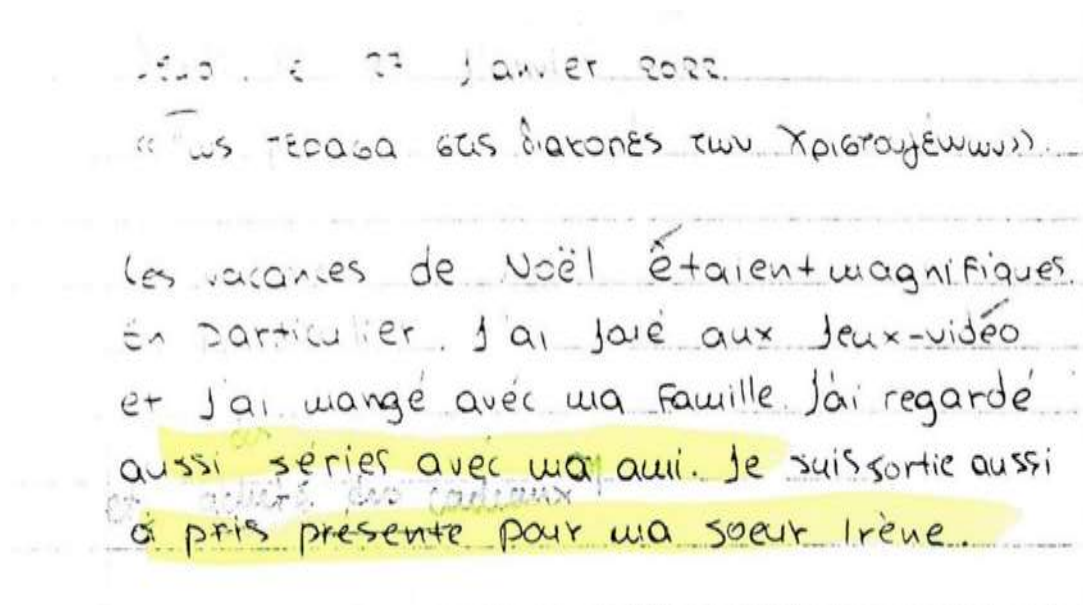 27 Janvier 2022.
«Πως πέρασα στις διακοπές των Χριστουγέννων»
Les vacances de Noël êtaient magnifiques.
En particulier. J'ai joié aux Jeux-vidéo
et J'ai mangé avéc ma Famille. J'ai regardé
des
aussi séries avec ma ami. Je suis sortie aussi
et acheté des cadeaux
à pris présente pour ma soeur Irène.